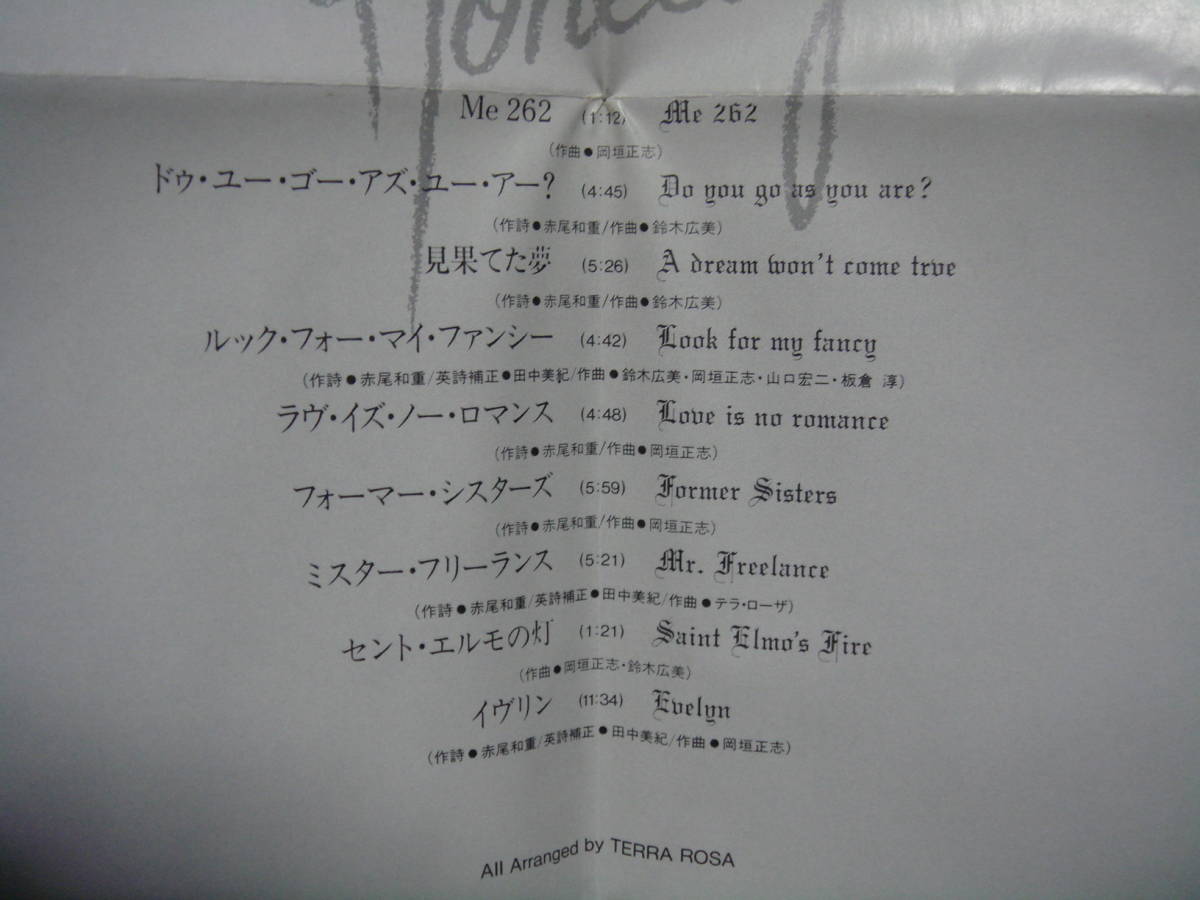 Me 262 (1:12) Me 262
(作曲●岡垣正志)
ドゥ・ユー・ゴー・アズ・ユー・アー? (4:45) Do you go as you are?
(作詩●赤尾和重/作曲●鈴木広美)
見果てた夢 (5:26) A dream won't come trve
(作詩●赤尾和重/作曲●鈴木広美)
ルック・フォー・マイ・ファンシー (4:42) Look for my fancy
(作詩●赤尾和重/英詩補正●田中美紀/作曲●鈴木広美・岡垣正志・山口宏二・板倉 淳)
ラヴ・イズ・ノー・ロマンス (4:48) Love is no romance
(作詩●赤尾和重/作曲●岡垣正志)
フォーマー・シスターズ (5:59) Former Sisters
(作詩●赤尾和重/作曲●岡垣正志)
ミスター・フリーランス (5:21) Mr. Freelance
(作詩●赤尾和重/英詩補正●田中美紀/作曲●テラ・ローザ)
セント・エルモの灯 (1:21) Saint Elmo's Fire
(作曲●岡垣正志・鈴木広美)
イヴリン (11:34) Evelyn
(作詩●赤尾和重/英詩補正●田中美紀/作曲●岡垣正志)
All Arranged by TERRA ROSA